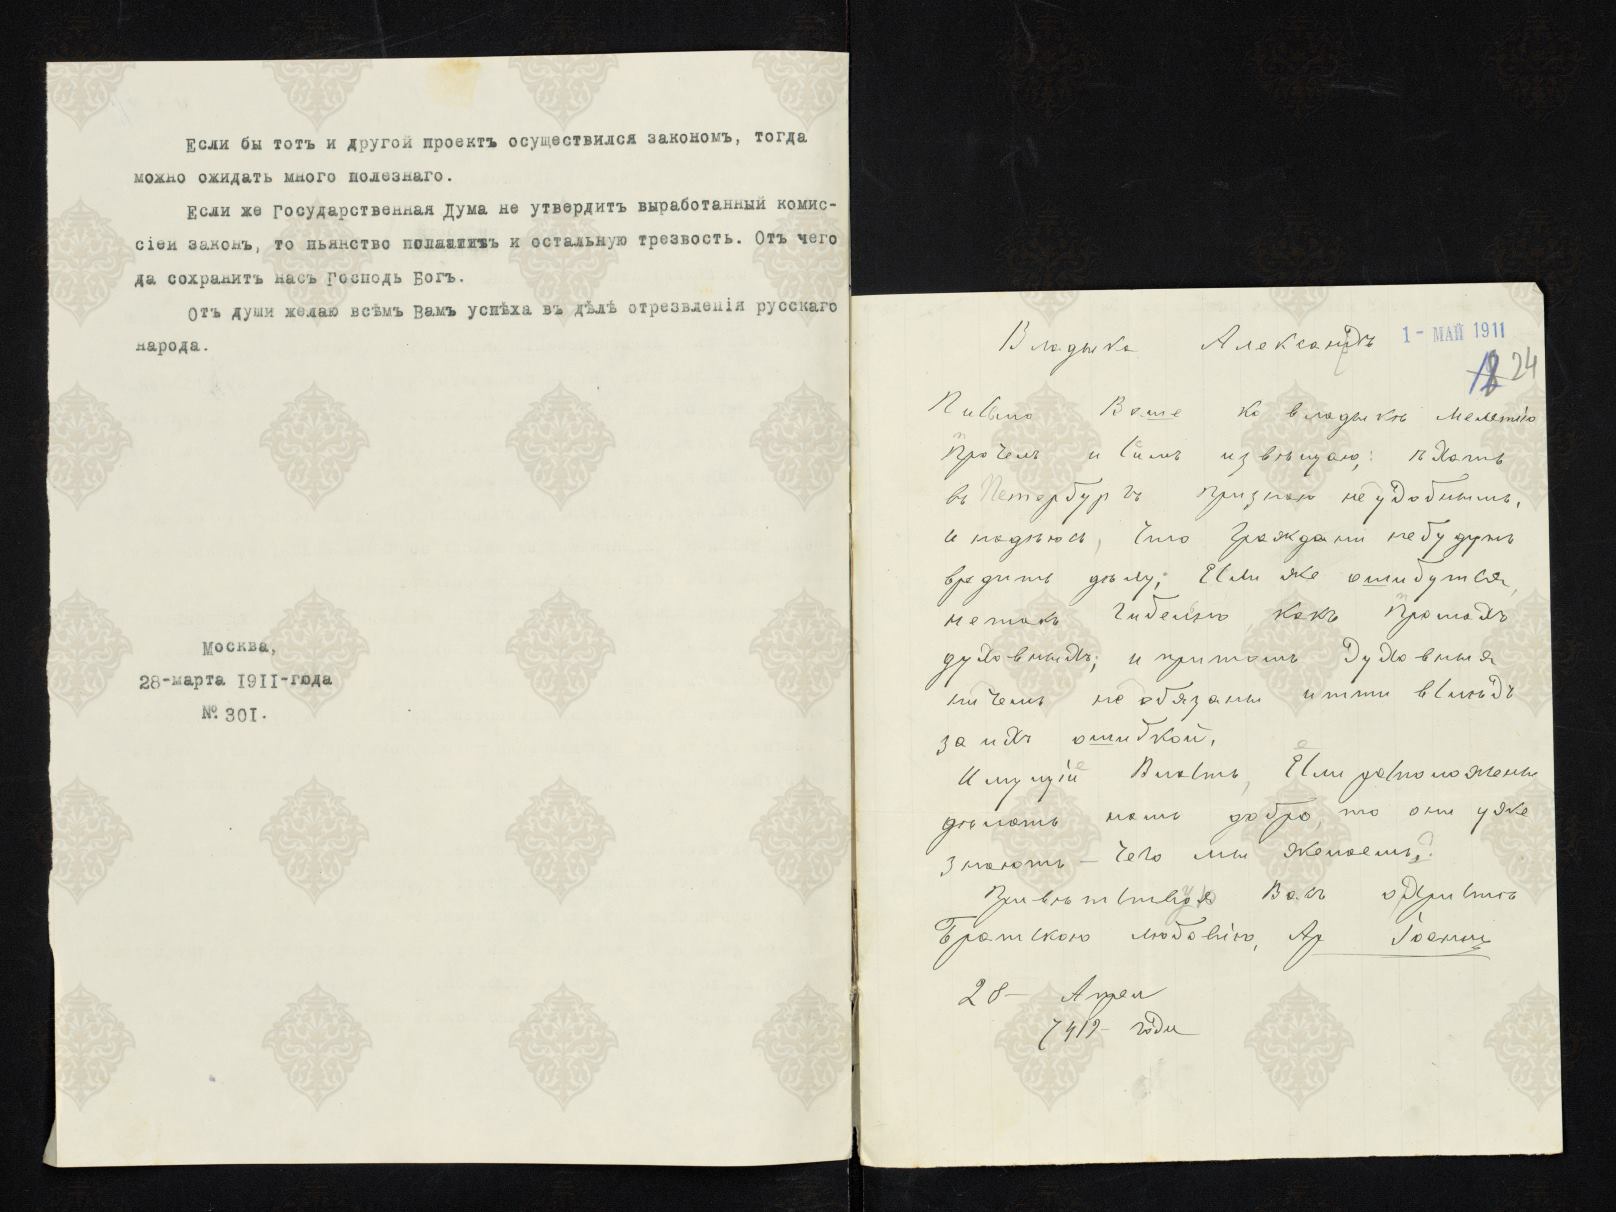 Если бы тотъ и другой проектъ осуществился закономъ, тогда
можно ожидать много полезнаго.
Если же Государственная Дума не утвердитъ выработанный комис-
сіей законъ, то пьянство и остальную трезвость. Отъ чего
да сохранитъ насъ Господь Богъ.
Отъ души желаю всѣмъ Вамъ успѣха въ дѣлѣ отрезвленія русскаго
народа.
Москва,
28-марта 1911-года
№ 301.
1 - МАЙ 1911
24
Владыка Александръ
Письмо Ваше ко владыкѣ Мелетію
прочелъ и симъ извѣщаю; ѣхать
въ Петербургъ признаю неудобнымъ,
и надѣюсь, что граждани небудутъ
вредить дѣлу; Если же ошибутся,
нетакъ гибельно какъ промахъ
духовныхъ; и притомъ духовныя
ничемъ необязаны итти вслѣдъ
за ихъ ошибкой.
Имущіе Власть, Если расположены
дѣлать намъ добро, то они уже
знаютъ — чего мы желаемъ.
Привѣтствуя Васъ о Христѣ
Братскою любовію, Ар Іоаннъ
28 — Апрел
7419 — года